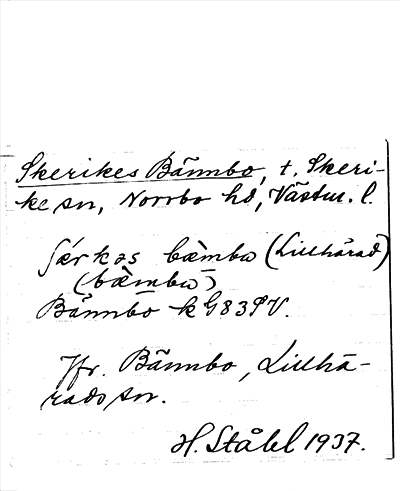 Skerikes Bännbo, t. Skeri-
ke sn, Norrbo hd, Västm. l.
Särkas bæmbω (Lillhärad)
(bæmbω)
Bännbo k G83SV.
Jfr. Bännbo, Lillhä-
rads sn.
H. Ståhl 1937.